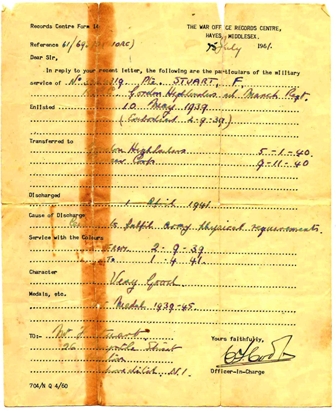 Records Centre Form 14
THE WAR OFFICE RECORDS CENTRE,
HAYES, MIDDLESEX.
Reference 61/64
July 1961.
Dear Sir,
In reply to your recent letter, the following are the particulars of the military
service of No. 119 Pte STUART, F.
Gordon Highlanders
Enlisted 10 May 1939
(Embodied 2-9-39)
Transferred to
Highlanders 5-1-40
Corps 9-11-40
Discharged
1 April 1941
Cause of Discharge
to fulfil army physical requirements.
Service with the Colours
2-9-39
To 1-4-41.
Character
Very Good
Medals, etc.
Medal 1939-45.
TO:- Mr
26 Street
Yours faithfully,
N.1.
Officer-in-Charge
704/N Q 4/60